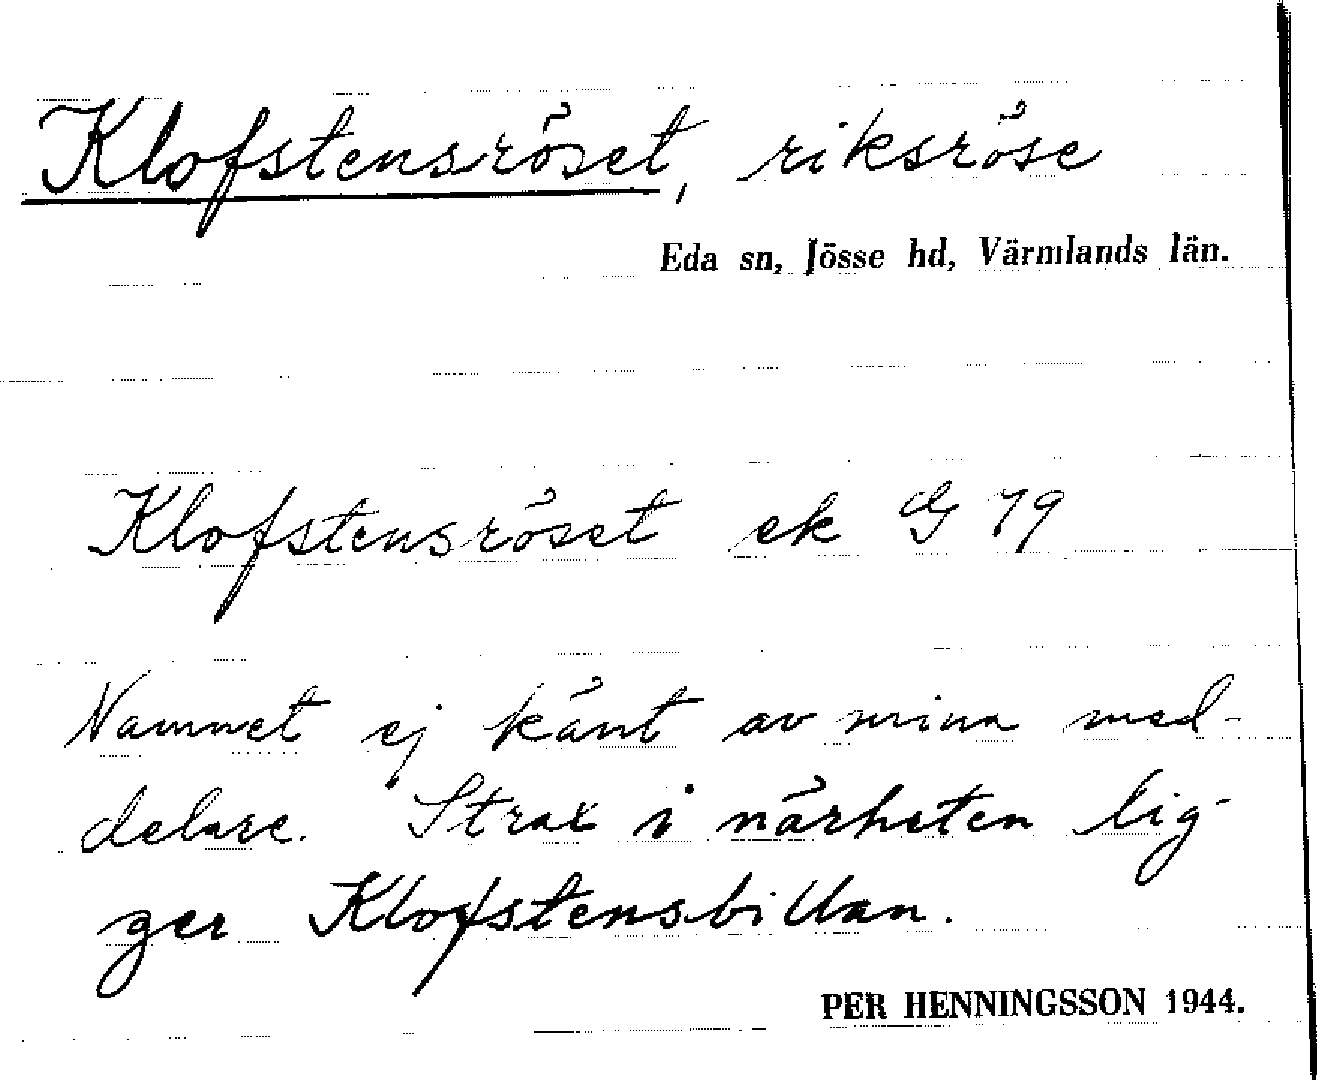 Klofstensröset, riksröse
Eda sn, Jösse hd, Värmlands län.
Klofstensröset ek G 79
Namnet ej känt av mina med-
delare. Strax i närheten lig-
ger Klofstensbillan.
PER HENNINGSSON 1944.